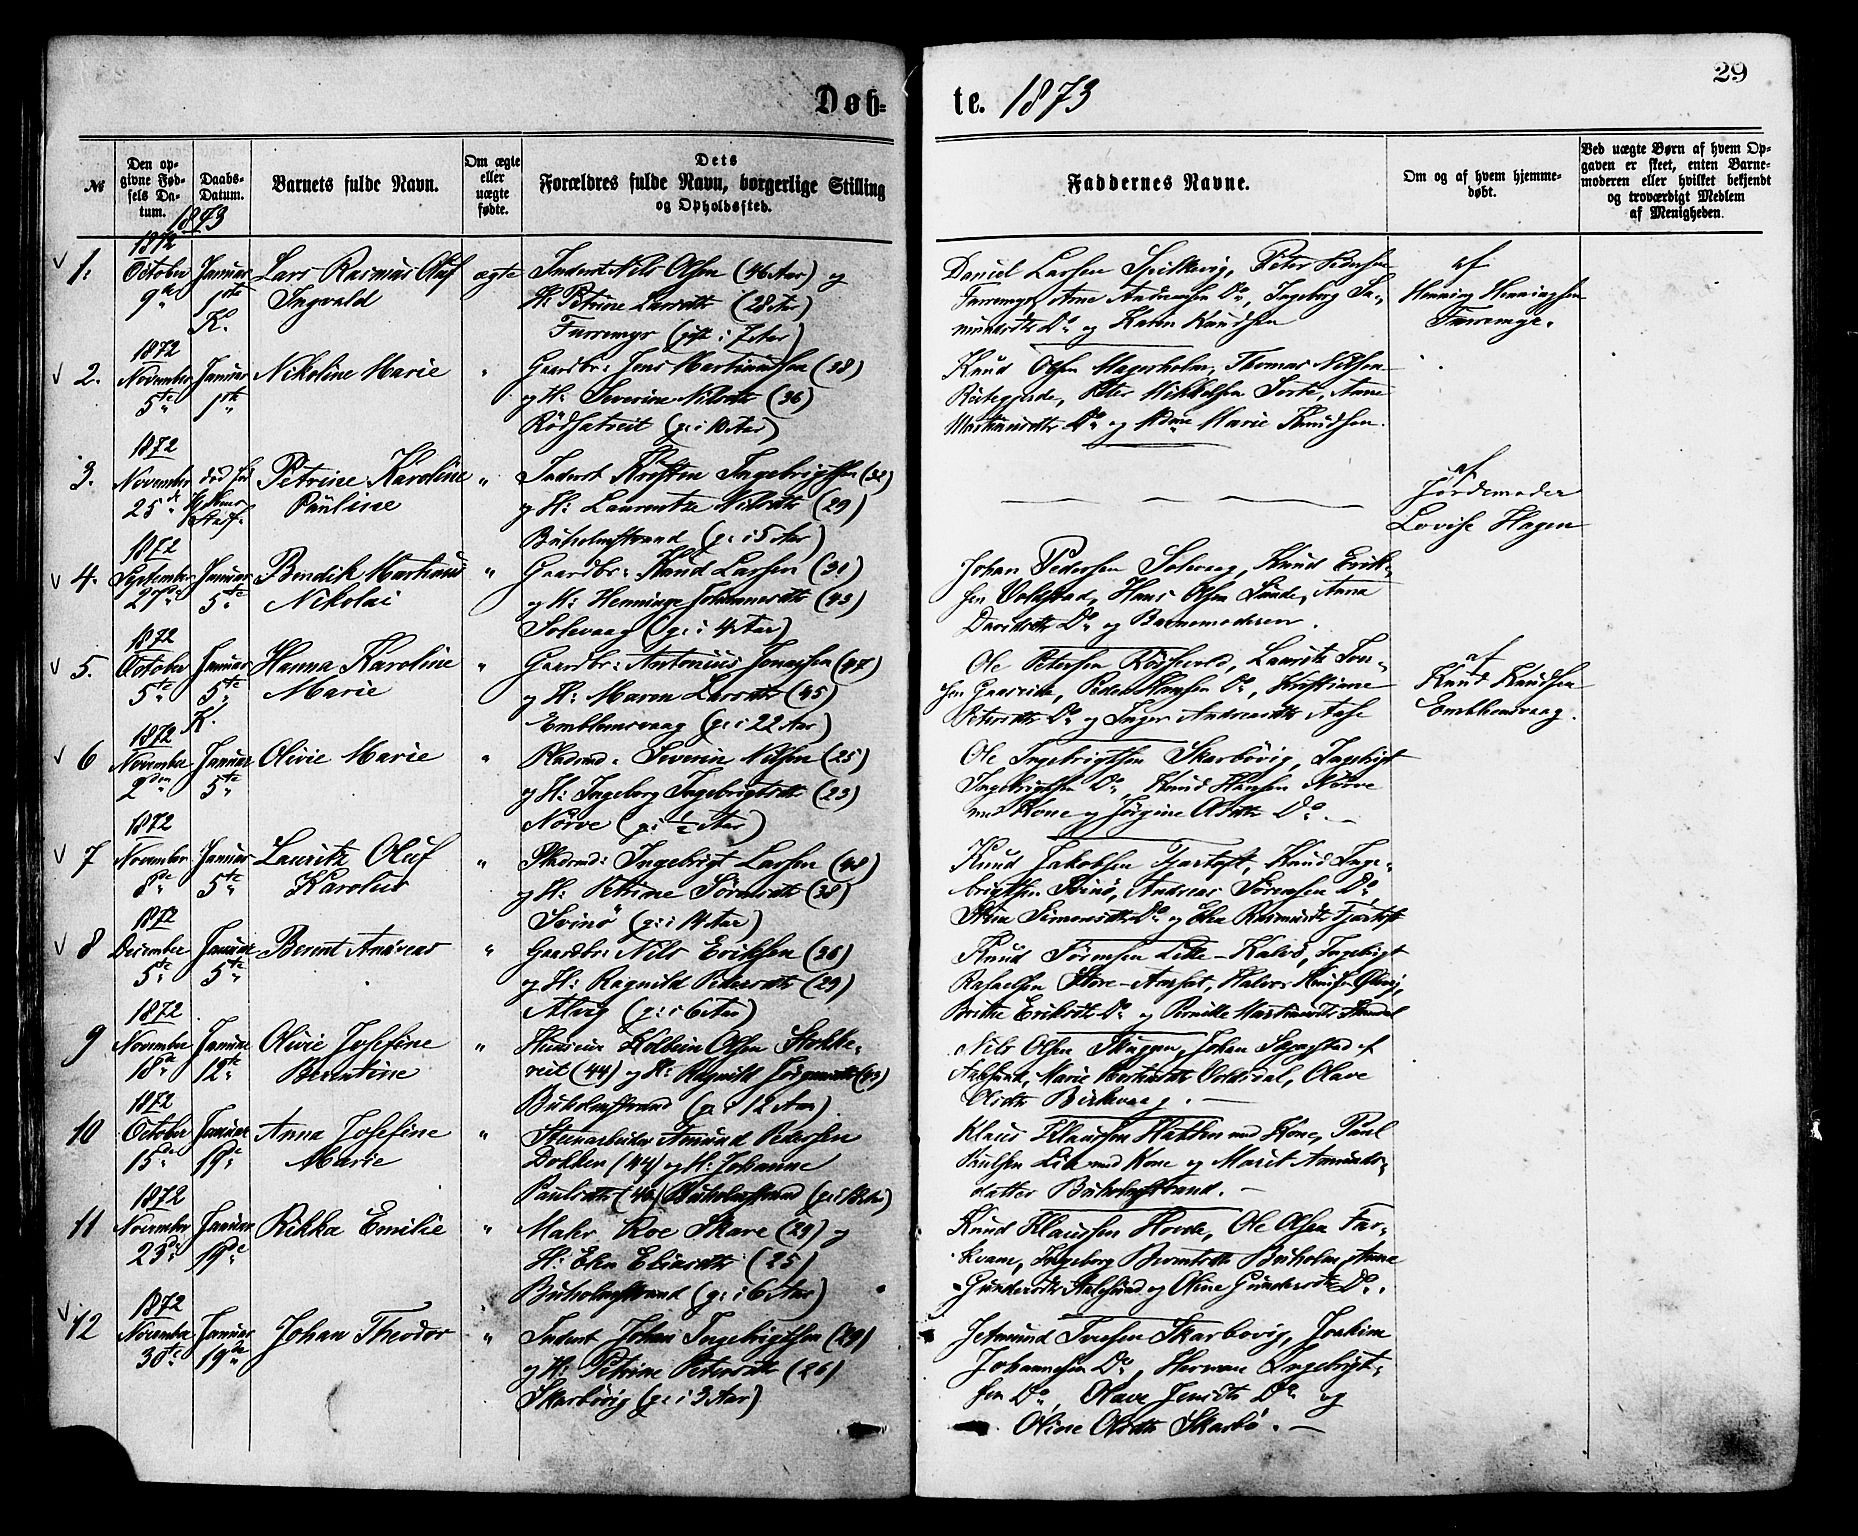 29
Døb-
te. 1873
№
Den op-
givne Fød-
sels Da-
tum.
Daabs-
Datum.
1873
Barnets fulde Navn.
Om ægte
eller
uægte
fødte.
Dets
Forældres fulde Navn, borgerlige Stilling
og Opholdssted.
Faddernes Navne.
Om og af hvem hjemme-
døbt.
Ved uægte Børn af hvem Op-
gaven er skeet, enten Barne-
moderen eller hvilket bekjendt
og troværdigt Medlem
af Menigheden.
1.
1872
October
9de
Januar
1ste
K.
Lars Rasmus Oluf
Ingvald
ægte
Inderst Nils Olsen (46 Aar) og
H: Petrine Larsdtr (28 Aar)
Furremyr (gift i 7 Aar)
Daniel Larsen Spilkevig, Peter Pedersen
Furremyr, Arne Andreassen Do, Ingeborg Sa-
muelsdtr Do og Karen Knudsen
af
Henning Henningsen
Furremyr.
2.
1872
November
5te
Januar
1ste
Nikoline Marie
"
Gaardbr: Jens Martinussen (38)
og H: Severine Nilsdtr (36)
Rödsætreit (g: i 10 Aar)
Knud Olsen Magerholm, Thomas Nilsen
Peter Mikkelsen Anne
Do og Marie Knudsen.
3.
1872
November
25de
död
Petrine Karoline
Pauline
"
Inderst Kristen Ingebrigtsen
og H: Laurentze Nilsdtr (29)
Buholmstrand (g: i 5 Aar)
af
Jordemoder
Lovise Hagen
4.
1872
September
Januar
5te
Bendik Martinus
Nikolai
"
Gaardbr: Knud Larsen (31)
og H: Henninge Johannesdtr (43)
Solevaag (g: i 4 Aar)
Johan Pedersen Solevaag, Knud Erik-
sen Hans Olsen Anna
Davidsdtr Do og Barnemoderen.
5.
1872
October
5te
Januar
5te
K.
Hanna Karoline
Marie
"
Gaardbr: Antonius Jonassen (47)
og H: Maren Larsdtr (45)
Emblemsvaag (g: i 22 Aar)
Ole Petersen Laurits
Peder Hansen Do, Kristiane
Petersdtr Do og Inger Andreasdtr Aase
af
Knud Knudsen
Emblemsvaag.
6
1872
November
2den
Januar
5te
Olivie Marie
"
Pladsmd: Severin Nilsen (25)
og H: Ingeborg Ingebrigtsdtr (23)
Nörve (g: i ½ Aar)
Ole Ingebrigtsen Skarbövig, Ingebrigt
Ingebrigtsen Do, Knud Hansen Nörve
med Kone og Jörgine Olsdtr Do.
7
1872
November
8de
Januar
5te
Lauritz Oluf
Karolus
"
Pladsmd: Ingebrigt Larsen (48)
og H: Petrine Sörensdtr (38)
Svinö (g: i 14 Aar)
Knud Jakobsen Tjærtoft, Knud Inge-
brigtsen Svinö, Andreas Sörensen Do,
Stina Simonsdtr Do og Elen Rasmusdtr Tjærtoft
8
1872
December
5te
Januar
5te
Bernt Andreas
"
Gaardbr: Nils Eriksen (36)
og H: Ragnild Pedersdtr (29)
(g: i 6 Aar)
Knud Sörensen Lille-Kalvö, Ingebrigt
Rafaelsen Store-Aarset, Halvor Knudsen
Brithe Eriksdtr Do og Pernille Martinusdtr
9
1872
November
18de
Januar
12te
Olivie Josefine
Berntine
"
Kolbein Olsen Stokke-
reit (44) og H: Ragnild Jörgensdtr (43)
Buholmstrand (g: i 12 Aar)
Nils Olsen Skuggen, Johan
Aalesund, Marie Voldsdal, Olave
Olsdtr Birkevaag.
10
1872
October
15de
Januar
19de
Anna Josefine
Marie
"
Stenarbeider Amund Pedersen
Dokken (44) og H: Johanne
Paulsdtr (40) Buholmstrand
Klaus Klaussen Hatlen med Kone, Paul
Paulsen Lid med Kone og Marit Amunds-
datter Buholmstrand.
11
1872
November
23de
Januar
19de
Rikka Emilie
"
Maler Roe Skare (29) og
H: Elen Eliasdtr (25)
Buholmstrand (g: i 6 Aar)
Knud Klaussen Ole Olsen Far-
Ingeborg Berntsdtr Buholm, Anne
Gundersdtr Aalesund og Oline Gundersdtr Do.
12
1872
November
30te
Januar
19de
Johan Theodor
"
Inderst Johan Ingebrigtsen (29)
og H: Petrine Petersdtr (26)
Skarbövig (g: i 3 Aar)
Jetmund Skarbövig, Joakim
Johannesen Do, Herman Ingebrigt-
sen Do, Olave Jensdtr Do og
Oline Olsdtr Skarbö.